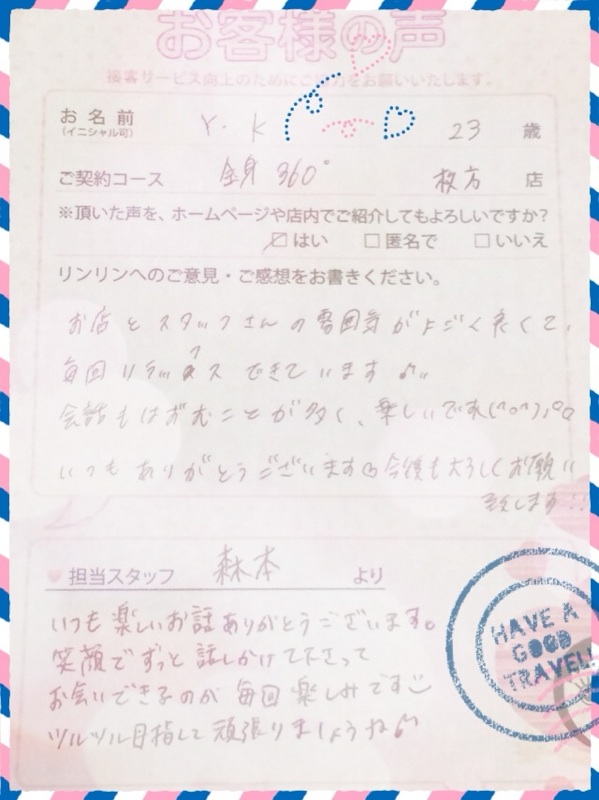 お客様の声
接客サービス向上のためにご協力をお願いいたします。
お名前 Y.K 23 歳
(イニシャル可)
ご契約コース 全身360° 枚方 店
※頂いた声を、ホームページや店内でご紹介してもよろしいですか?
☑はい □匿名で □いいえ
リンリンへのご意見・ご感想をお書きください。
お店とスタッフさんの雰囲気がすごく良くて、
毎回リラックスできています♪"
会話もはずむことが多く、楽しいです(^o^)
いつもありがとうございます 今後もよろしくお願い
致します!!
担当スタッフ 森本 より
いつも楽しいお話ありがとうございます。
笑顔でずっと話しかけて下さって
お会いできるのが毎回楽しみです
ツルツル目指して頑張りましょうね♪
HAVE A
GOOD
TRAVEL